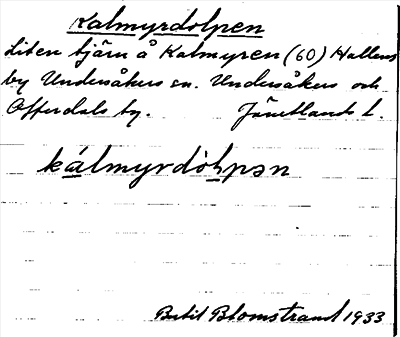 Kalmyrdolpen
Liten tjärn å Kalmyren (60) Hallens
by Undersåkers sn. Undersåkers och
Offerdals tg. Jämtlands l.
kálmyrdöḥpən
Bertil Blomstrand 1933